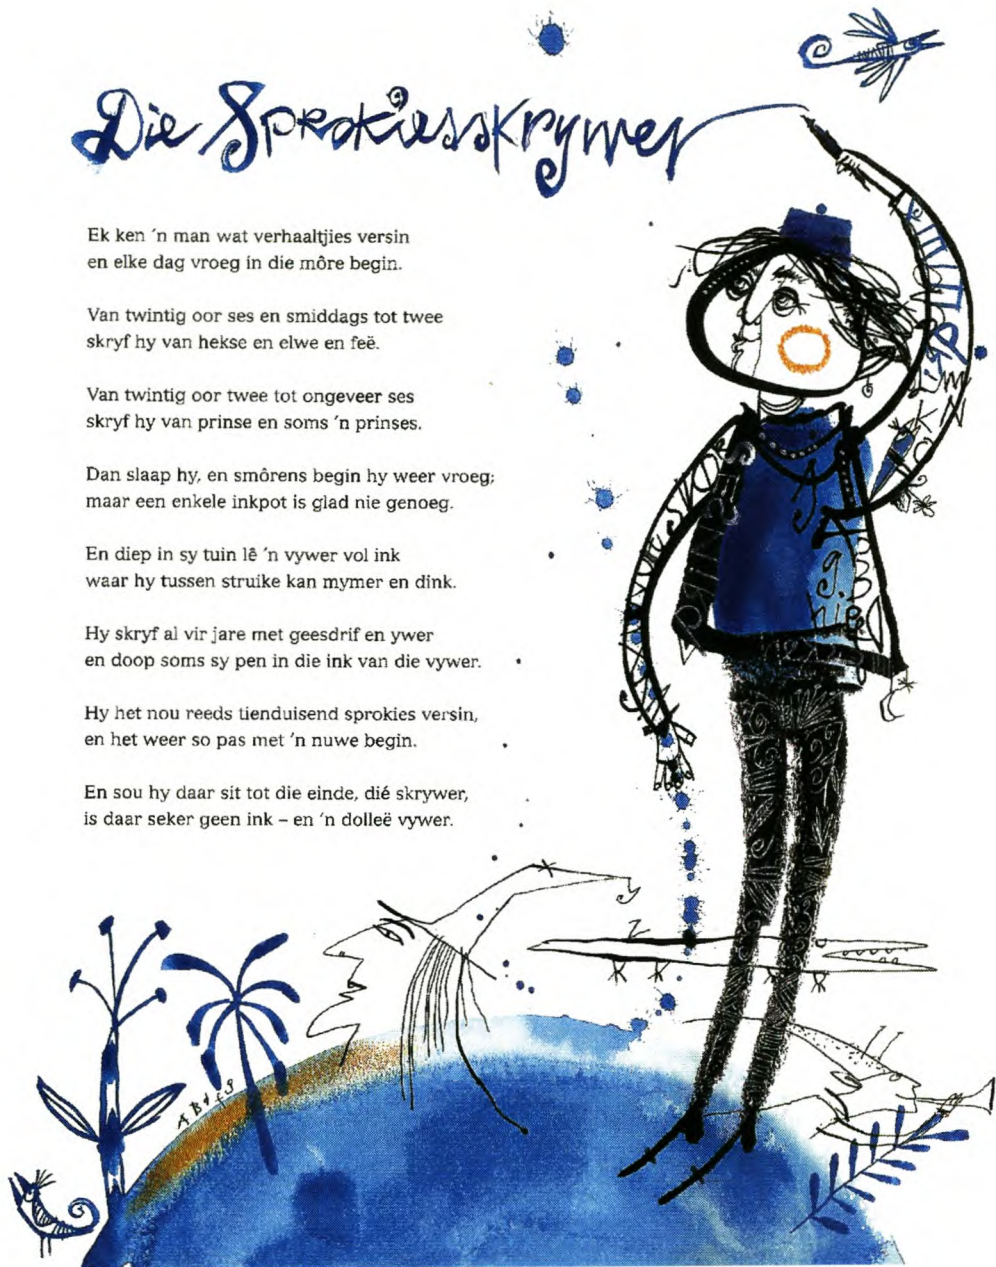 Die Sprokiesskrywer
Ek ken 'n man wat verhaaltjies versin
en elke dag vroeg in die môre begin.
Van twintig oor ses en smiddags tot twee
skryf hy van hekse en elwe en feë.
Van twintig oor twee tot ongeveer ses
skryf hy van prinse en soms 'n prinses.
Dan slaap hy, en smôrens begin hy weer vroeg;
maar een enkele inkpot is glad nie genoeg.
En diep in sy tuin lê 'n vywer vol ink
waar hy tussen struike kan mymer en dink.
Hy skryf al vir jare met geesdrif en ywer
en doop soms sy pen in die ink van die vywer.
Hy het nou reeds tienduisend sprokies versin,
en het weer so pas met 'n nuwe begin.
En sou hy daar sit tot die einde, dié skrywer,
is daar seker geen ink – en 'n dolleë vywer.